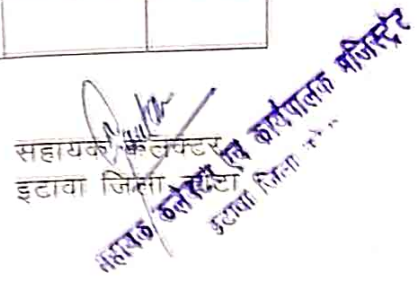 सहायक कलक्टर
इटावा जिला कोटा
सहायक कलेक्टर एवं कार्यपालक मजिस्ट्रेट
इटावा जिला